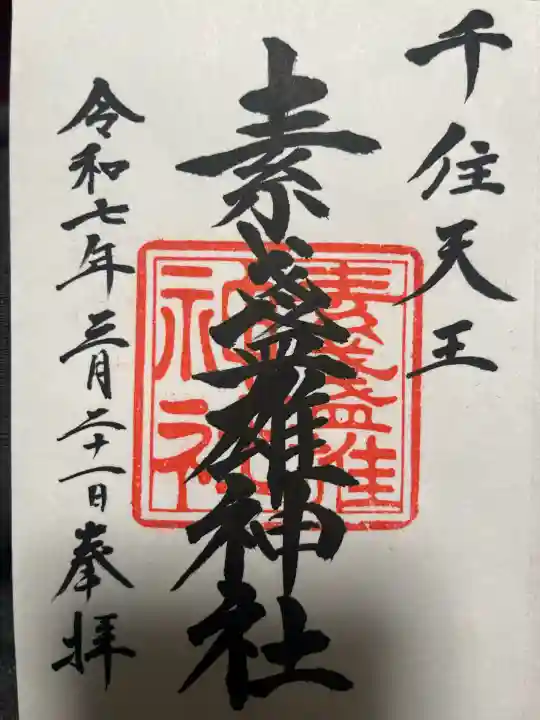 千住天王
素盞雄神社
素盞雄神社
令和七年三月二十一日奉拝